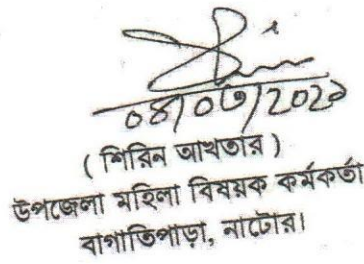 ০৪/০৩/২০২১
( শিরিন আখতার )
উপজেলা মহিলা বিষয়ক কর্মকর্তা
বাগাতিপাড়া, নাটোর।